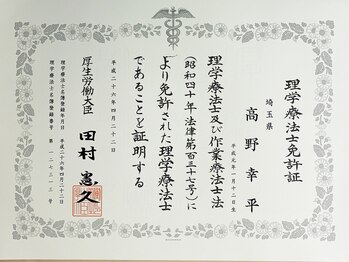 理学療法士免許証
埼玉県
高野幸平
平成元年一月十二日生
理学療法士及び作業療法士法
(昭和四十年法律第百三十七号)に
より免許された理学療法士
であることを証明する
平成二十六年四月二十二日
厚生労働大臣 田村憲久
理学療法士名簿登録年月日 平成二十六年四月二十二日
理学療法士名簿登録番号 第一二七三一三号